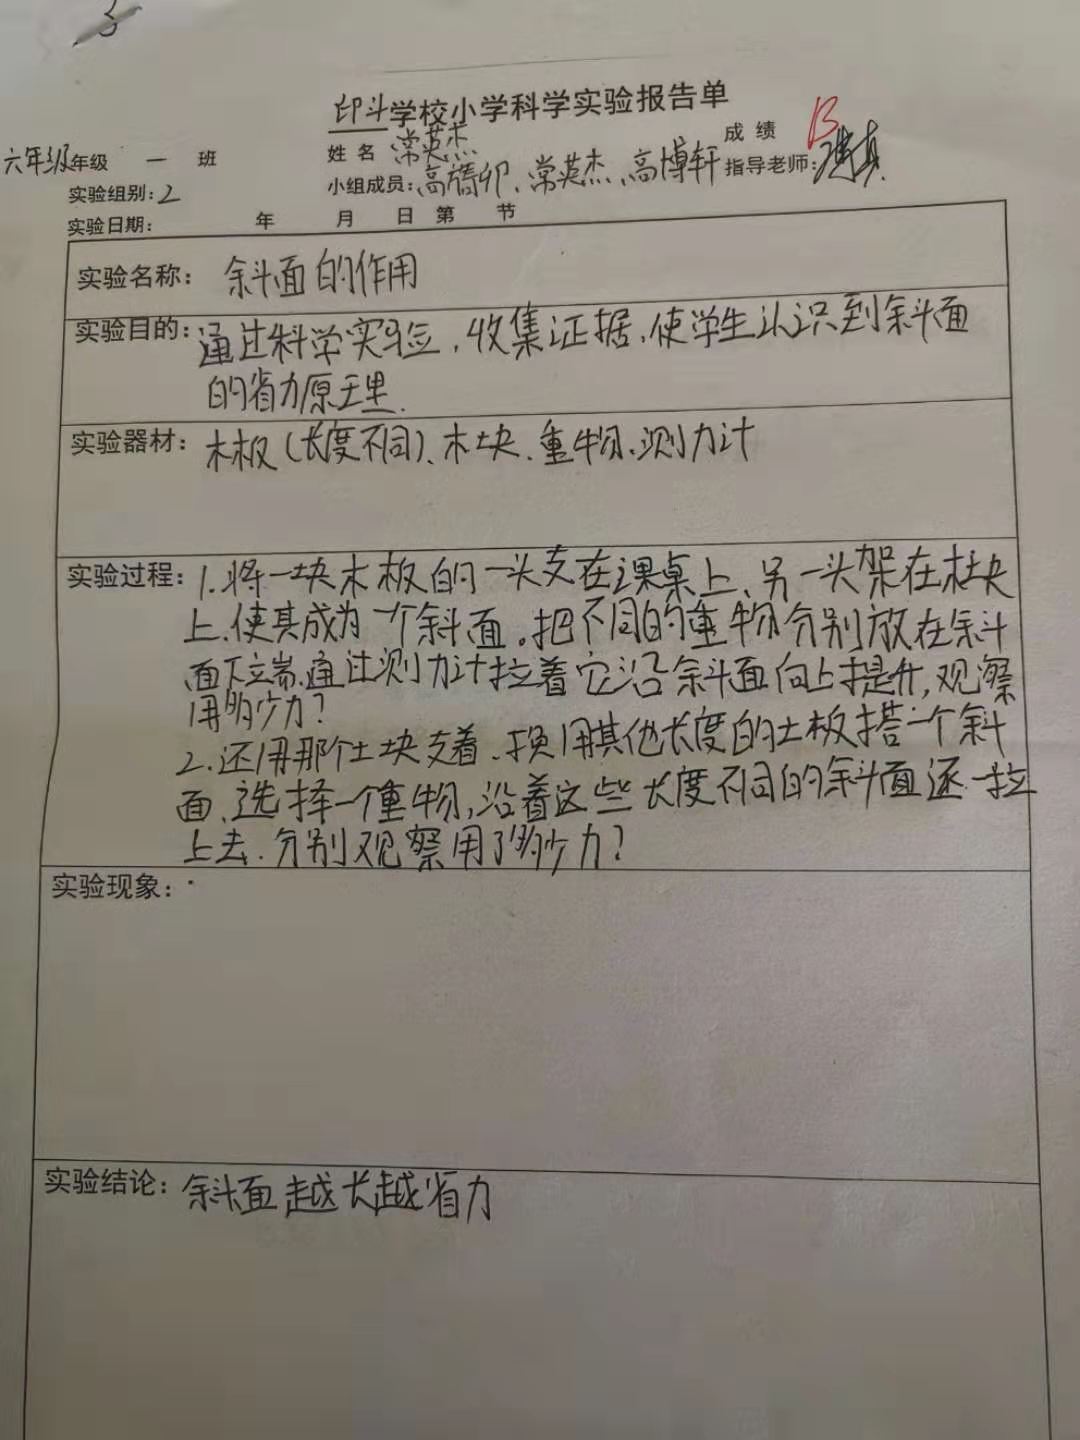 3
印斗学校小学科学实验报告单
六年级年级 一 班 姓名 常英杰 成绩 B
实验组别:2 小组成员:高精卯、常英杰、高博轩 指导老师:
实验日期: 年 月 日 第 节
实验名称: 斜面的作用
实验目的:通过科学实验,收集证据,使学生认识到斜面
的省力原理.
实验器材: 木板(长度不同)、木块、重物、测力计
实验过程:1.将一块木板的一头支在课桌上、另一头架在木块
上、使其成为一个斜面。把不同的重物分别放在斜
面下端、通过测力计拉着它沿斜面向上提升,观察
用多少力?
2.还用那个土块支着、换用其他长度的土板搭一个斜
面、选择一个重物,沿着这些长度不同的斜面逐一拉
上去.分别观察用了多少力?
实验现象:
实验结论: 斜面越长越省力